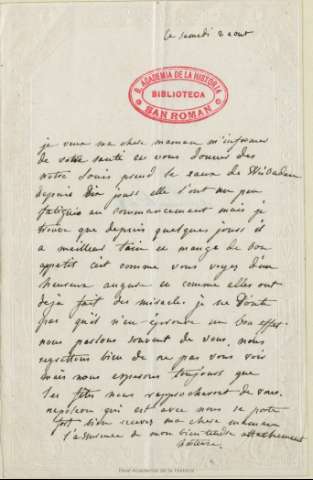 ce samedi 2 aout
R. ACADEMIA DE LA HISTORIA
BIBLIOTECA
SAN ROMAN
je veux ma chere maman m'informer
de votre santé et vous donner des
notre Louis prend le eaux de
depuis dix jours elle l'ont un peu
fatiguée au commancement mais je
trouve que depuis quelques jours il
a meilleur tain et mange de bon
appetit c'est comme vous voyez d'un
heureux augure et comme elles ont
deja fait des miracles je ne doute
pas qu'il n'en éprouve un bon effet.
nous parlons souvent de vous, nous
regrettons bien de ne pas vous voir
mais nous esperons toujours que
les fêtes nous rapprocheront de vous.
napoleon qui est avec nous se porte
fort bien recevez ma chere maman
l'assurance de mon bien tendre attachement
hortense
Real Academia de la Historia